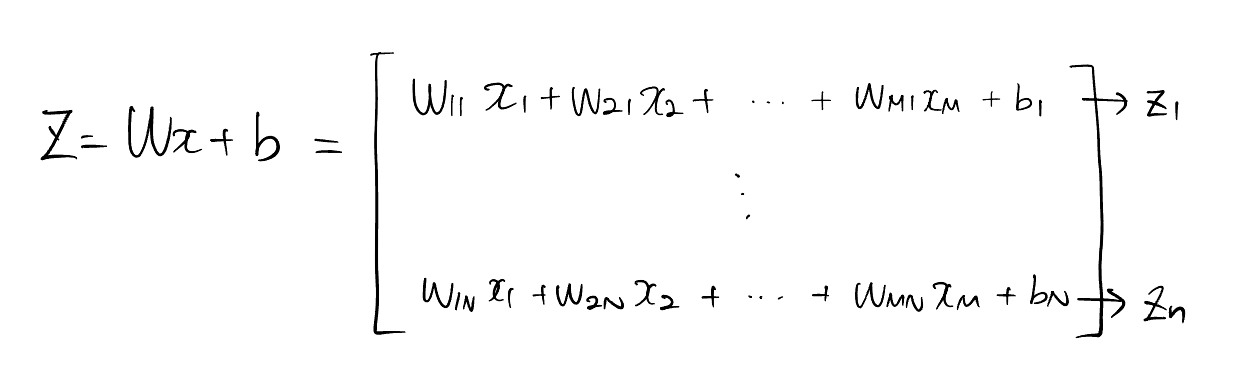 Z = Wx + b = [ W11 x1 + W21 x2 + ... + WM1 xM + b1 ] → z1
⋮
W1N x1 + W2N x2 + ... + WMN xM + bN → zn